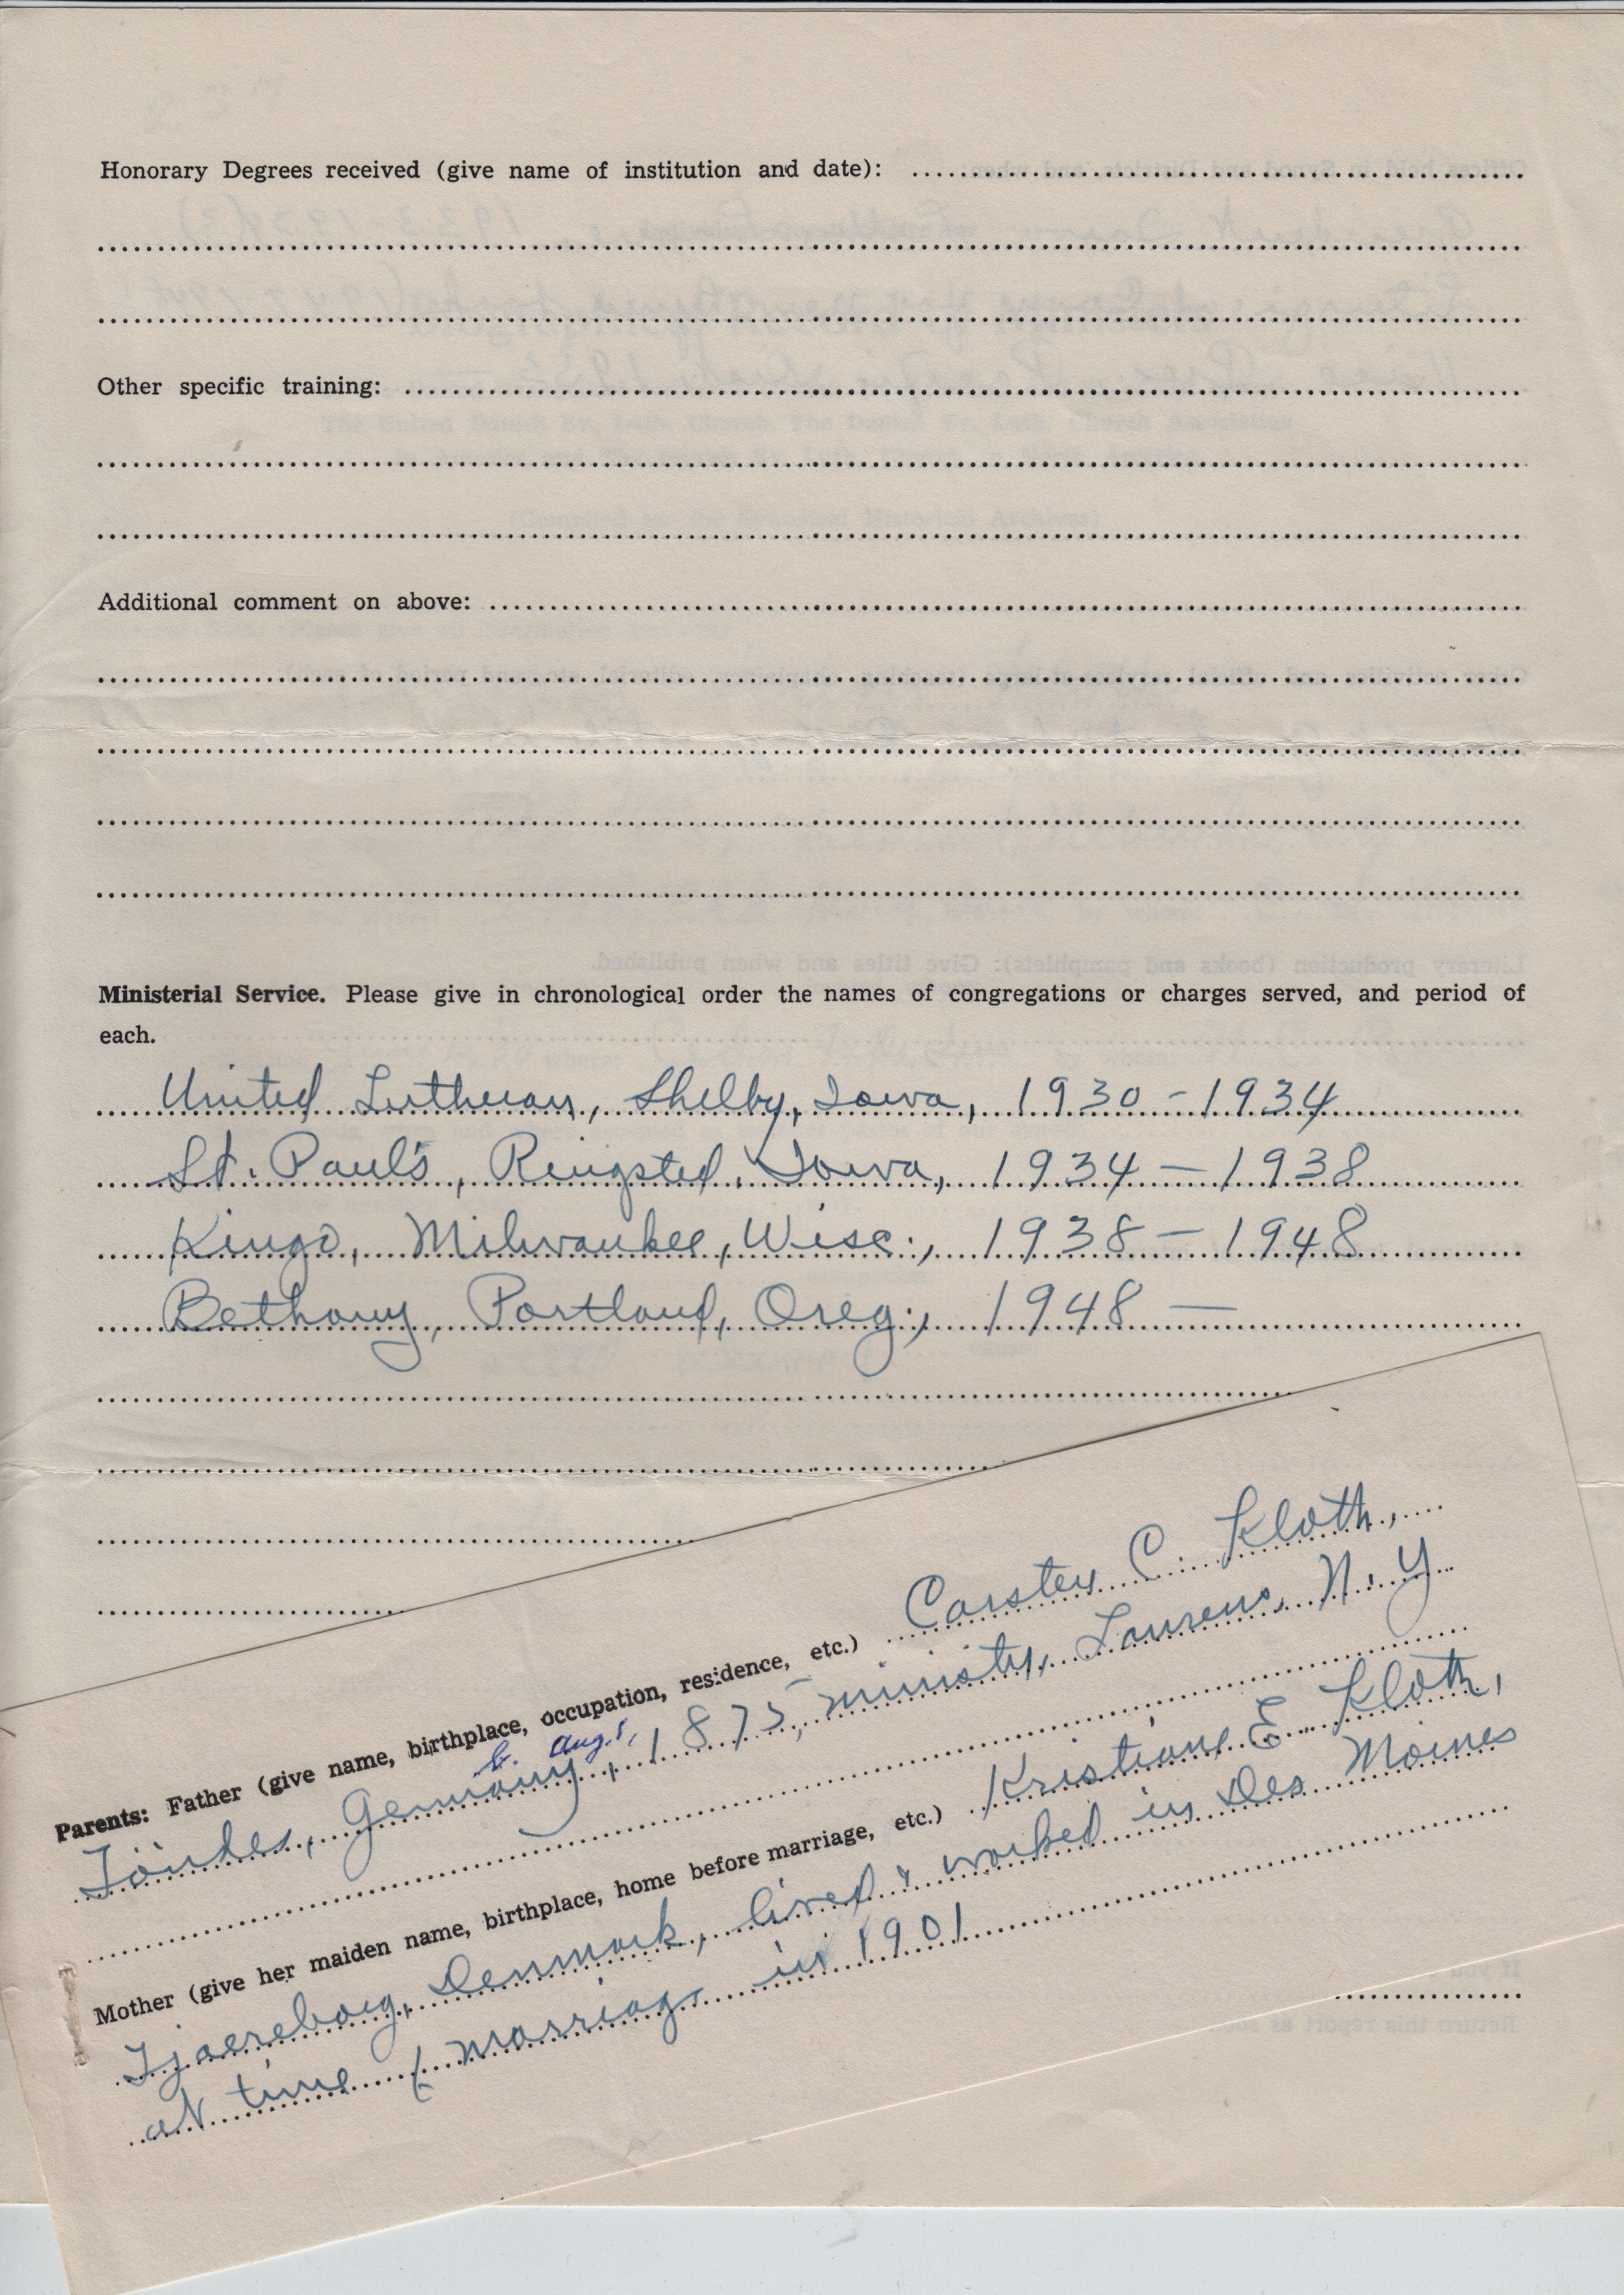 Honorary Degrees received (give name of institution and date):
Other specific training:
Additional comment on above:
Ministerial Service. Please give in chronological order the names of congregations or charges served, and period of
each.
United Lutheran, Shelby, Iowa, 1930-1934
St. Paul's, Ringsted, Iowa, 1934-1938
Kingo, Milwaukee, Wisc., 1938-1948
Bethany, Portland, Oreg., 1948-
Parents: Father (give name, birthplace, occupation, residence, etc.) Carsten C. Kloth,
b. Aug. 8,
Germany, 1875, ministry, Laurens, N.Y
Mother (give her maiden name, birthplace, home before marriage, etc.) Kristiane E. Kloth,
Tjaereborg, Denmark, lived & worked in Des Moines
at time of marriage in 1901
If you
Return this report as soon